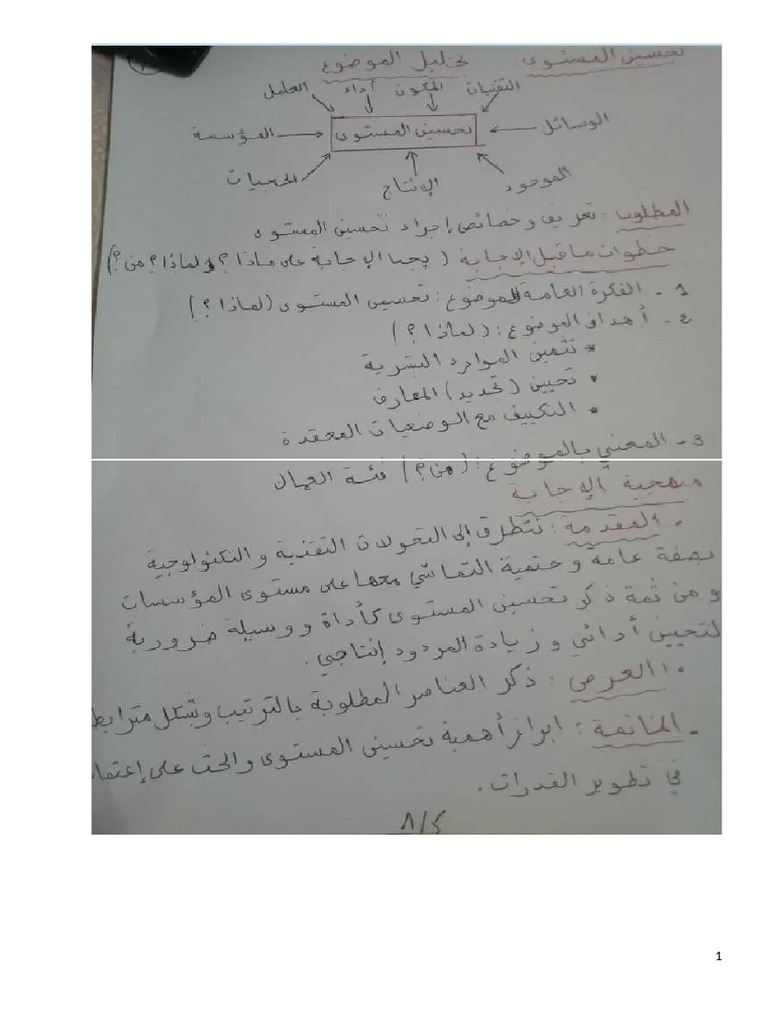 تحسين المستوى تحليل الموضوع
العامل أداء المكون التقنيات
المؤسسة تحسين المستوى الوسائل
الحجيات الإنتاج الموجود
المطلوب: تعريف وخصائص إجراء تحسين المستوى
خطوات ما قبل الإجابة (يجب الإجابة على ماذا؟ ولماذا؟ من؟)
1 - الفكرة العامة للموضوع: تحسين المستوى (لماذا؟)
2 - أهداف الموضوع: (لماذا؟)
* تثمين الموارد البشرية
* تحيين (تجديد) المعارف
* التكييف مع الوضعيات المعقدة
3 - المعني بالموضوع: (من؟) فئة العمال
منهجية الإجابة
- المقدمة: نتطرق إلى التحولات التقنية والتكنولوجية
بصفة عامة وحتمية التماشي معها على مستوى المؤسسات
ومن ثمة ذكر تحسين المستوى كأداة ووسيلة ضرورية
لتحيين أدائي وزيادة المردود إنتاجي.
- العرض: ذكر العناصر المطلوبة بالترتيب وبشكل مترابط
- الخاتمة: ابراز أهمية تحسين المستوى والحث على إعتماد
في تطوير القدرات.
1